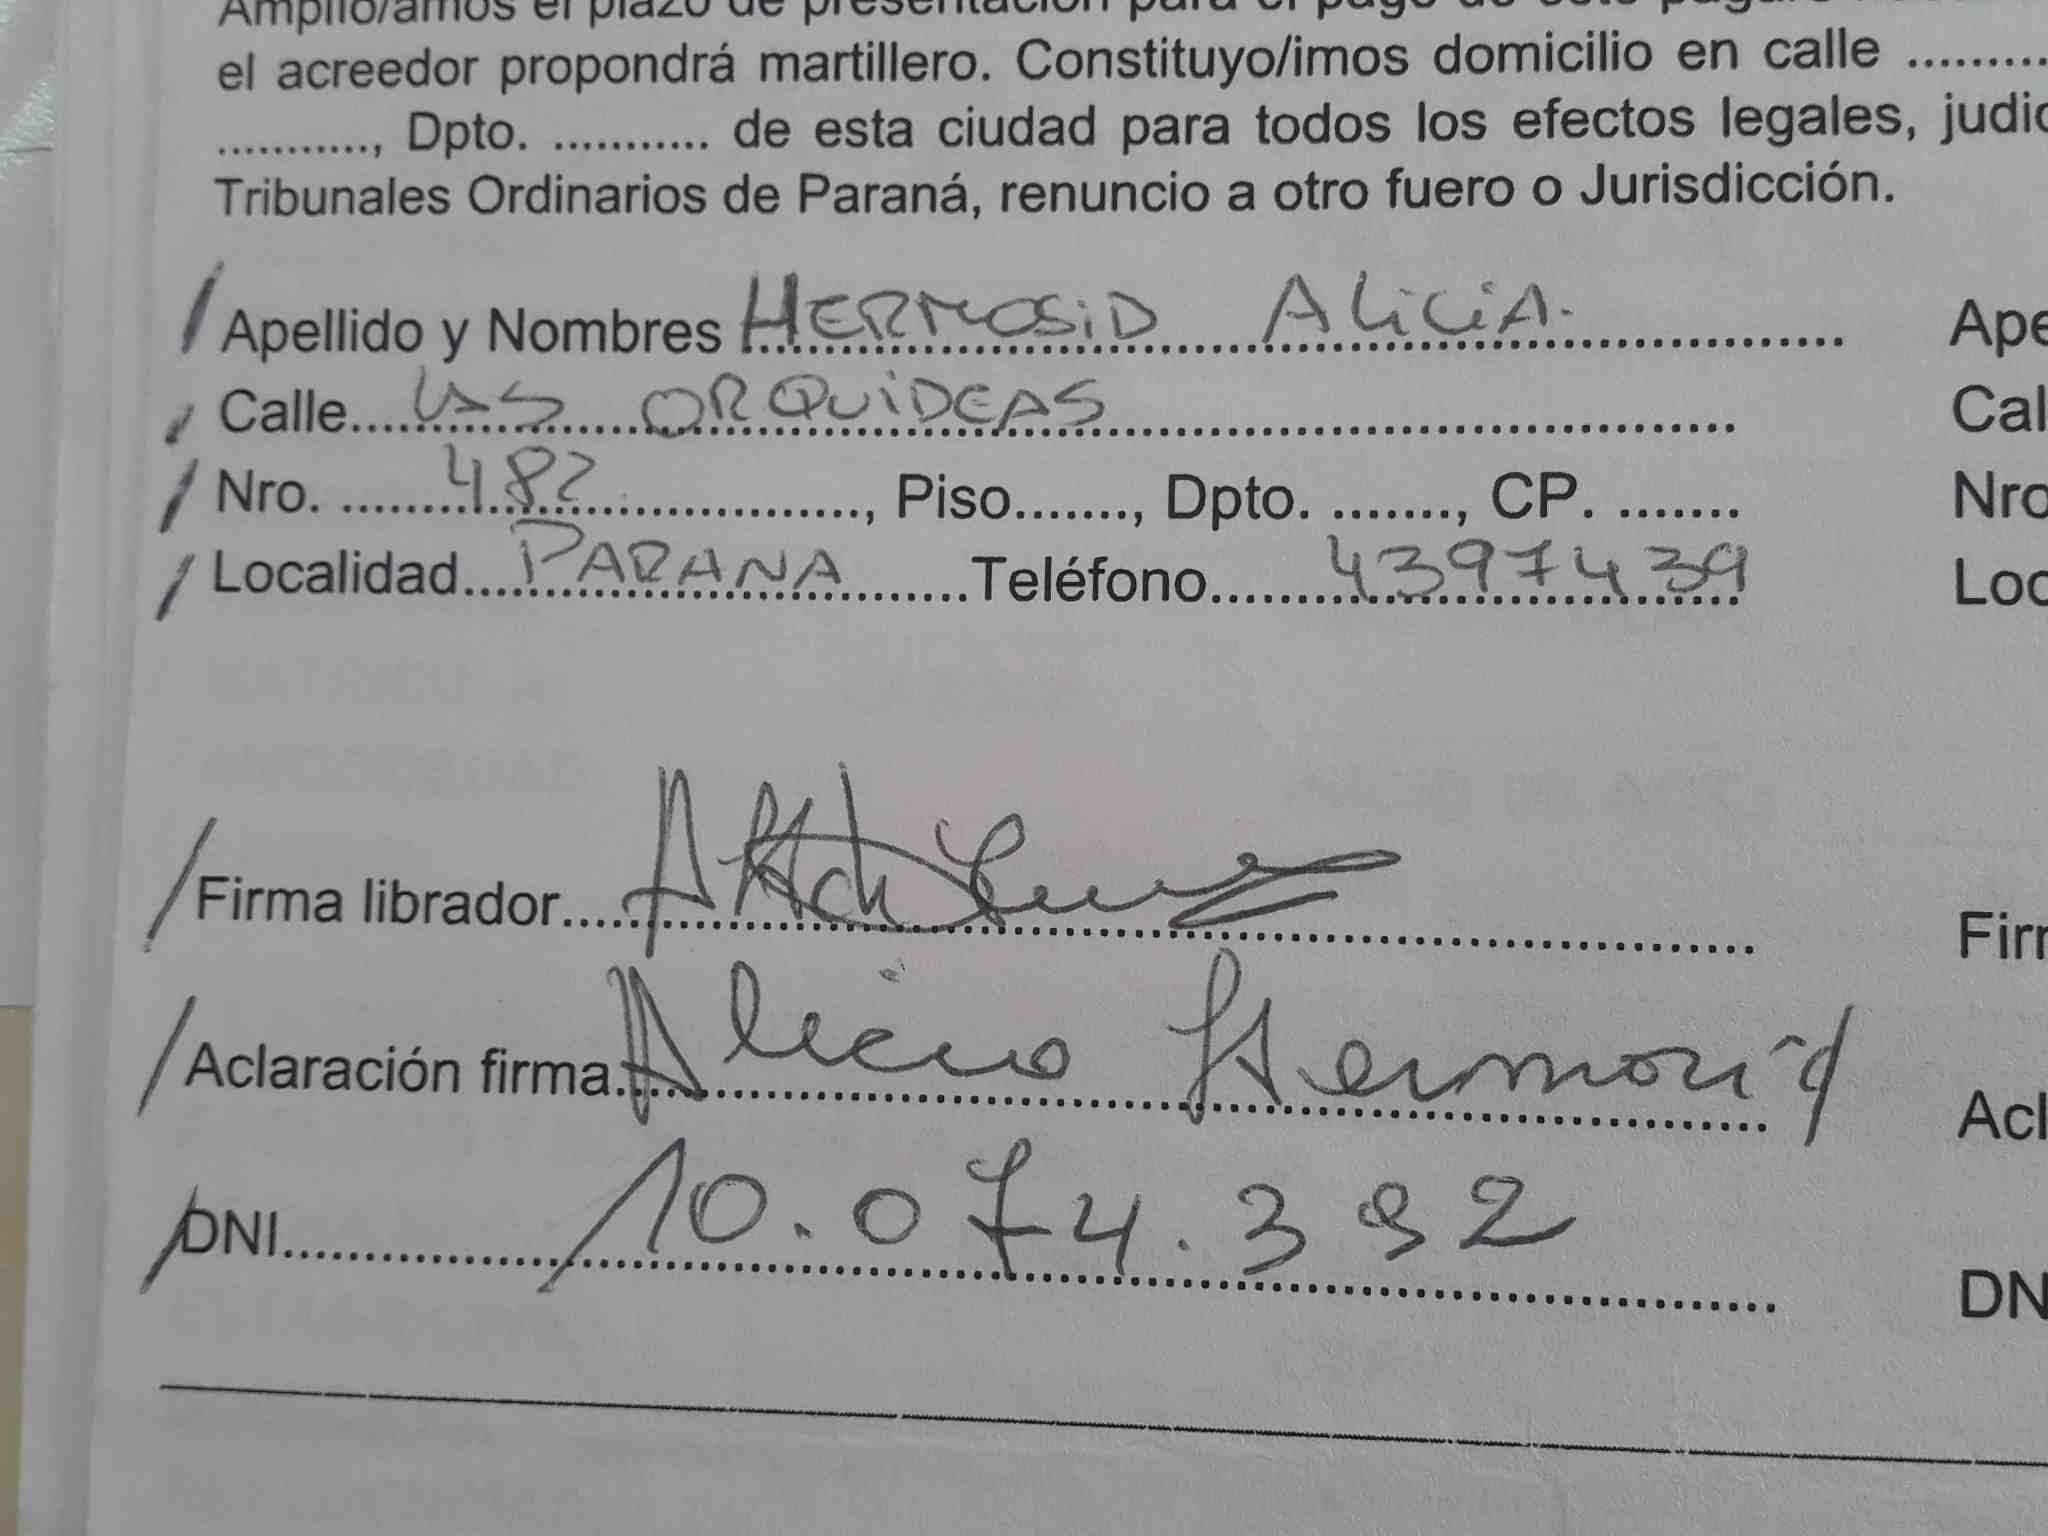 Amplio/amos el plazo de presentación para el pago de este pagaré
el acreedor propondrá martillero. Constituyo/imos domicilio en calle .........
..........., Dpto. ........... de esta ciudad para todos los efectos legales, judic
Tribunales Ordinarios de Paraná, renuncio a otro fuero o Jurisdicción.
Apellido y Nombres HERMOSID ALICIA. Ape
Calle....LAS ORQUIDEAS.... Cal
Nro. ....482...., Piso......., Dpto. ........, CP. ....... Nro
Localidad....PARANA....Teléfono....4397439 Loc
Firma librador.... Firm
Aclaración firma.Alicia Hermosid Acl
DNI....10.074.392.... DN